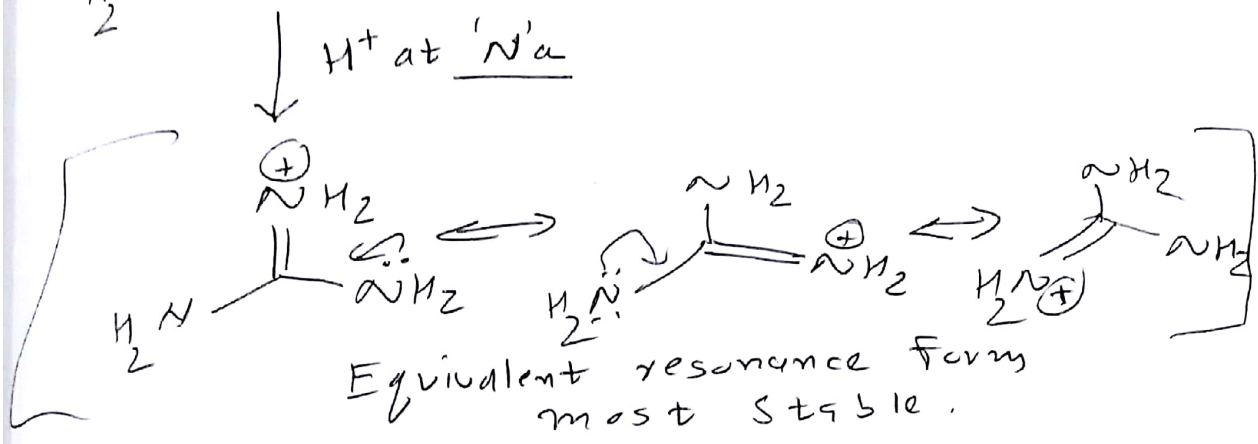 2
H+ at 'N'a
+
NH2
H2N
NH2
NH2
H2N
+
NH2
NH2
H2N
+
NH2
Equivalent resonance form
most stable.